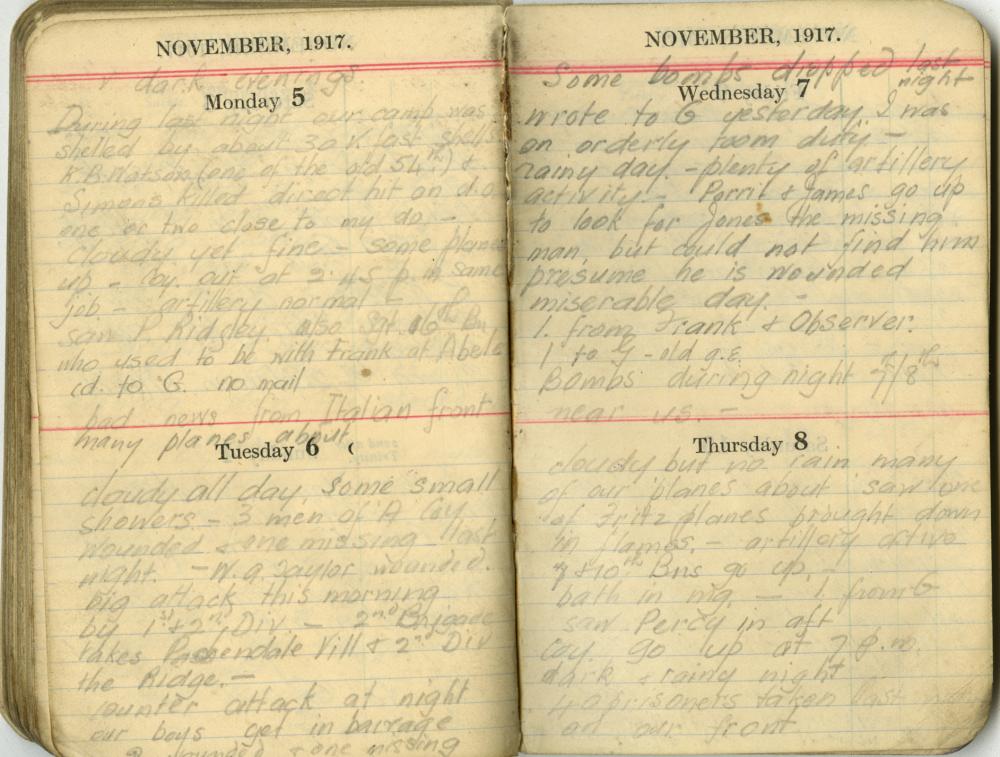 NOVEMBER, 1917.
dark evenings.
Monday 5
During last night our camp was
shelled by about 30 K last shells
K.B. Watson (one of the old 54th) &
Simons killed direct hit on d.o
one or two close to my do. -
cloudy yet fine - some planes
up - Coy. out at 2.45 p.m same
job. - artillery normal -
saw P. Ridgley. also Sgt. 16th Bn
who used to be with Frank at Abele
cd. to G. no mail
bad news from Italian front
many planes about.
Tuesday 6
cloudy all day, some small
showers. - 3 men of A Coy
wounded & one missing last
night. - W.G. Taylor wounded.
big attack this morning
by 1st & 2nd Div - 2nd Brigade
takes Pachendale Vill & 2nd Div
the Ridge. -
counter attack at night
our boys get in barrage
wounded & one missing
NOVEMBER, 1917.
Some bombs dropped last
night
Wednesday 7
wrote to G yesterday. I was
on orderly room duty -
rainy day. - plenty of artillery
activity. - Porrit & James go up
to look for Jones the missing
man, but could not find him
presume he is wounded
miserable day. -
1. from Frank & Observer.
1 to G - old a.e.
Bombs during night 7/8th
near us. -
Thursday 8
cloudy but no rain many
of our planes about saw one
of Fritz planes brought down
in flames. - artillery active
9 & 10th Bns go up. -
bath in mg. - 1. from G
saw Percy in aft
Coy. go up at 7 p.m.
dark & rainy night
prisoners taken last
on our front